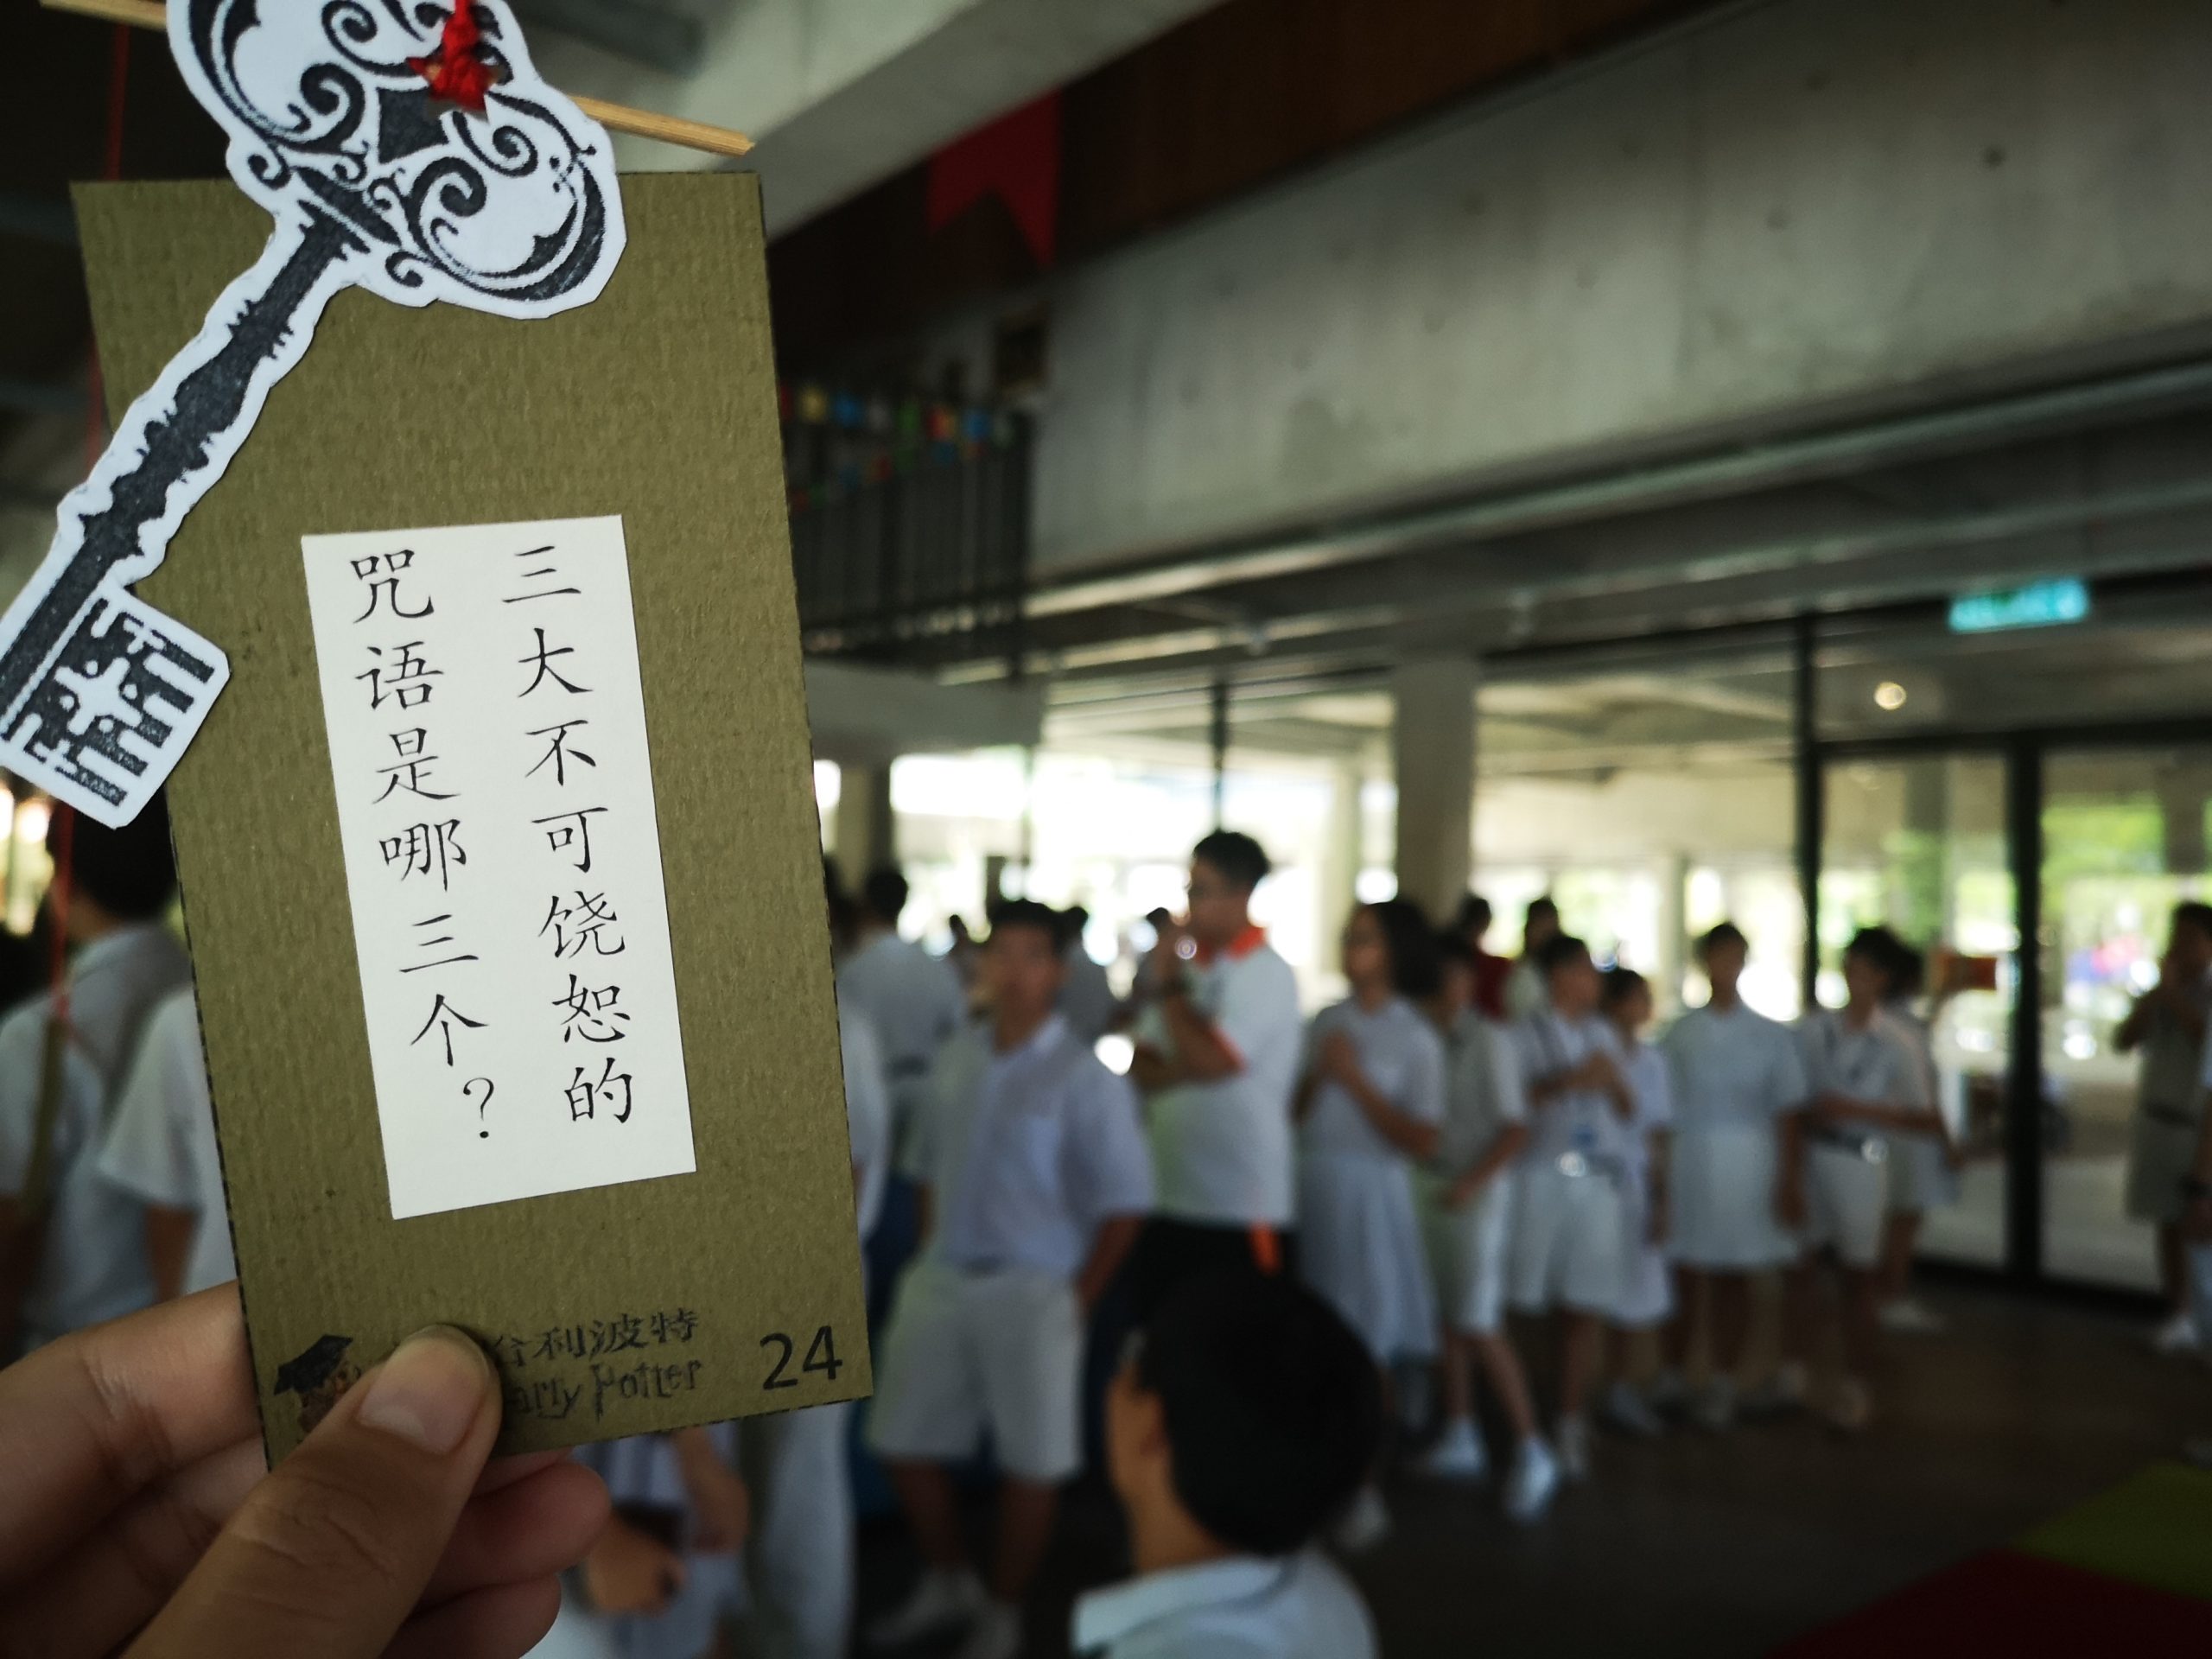 三大不可饶恕的
咒语是哪三个？
哈利波特
Potter
24